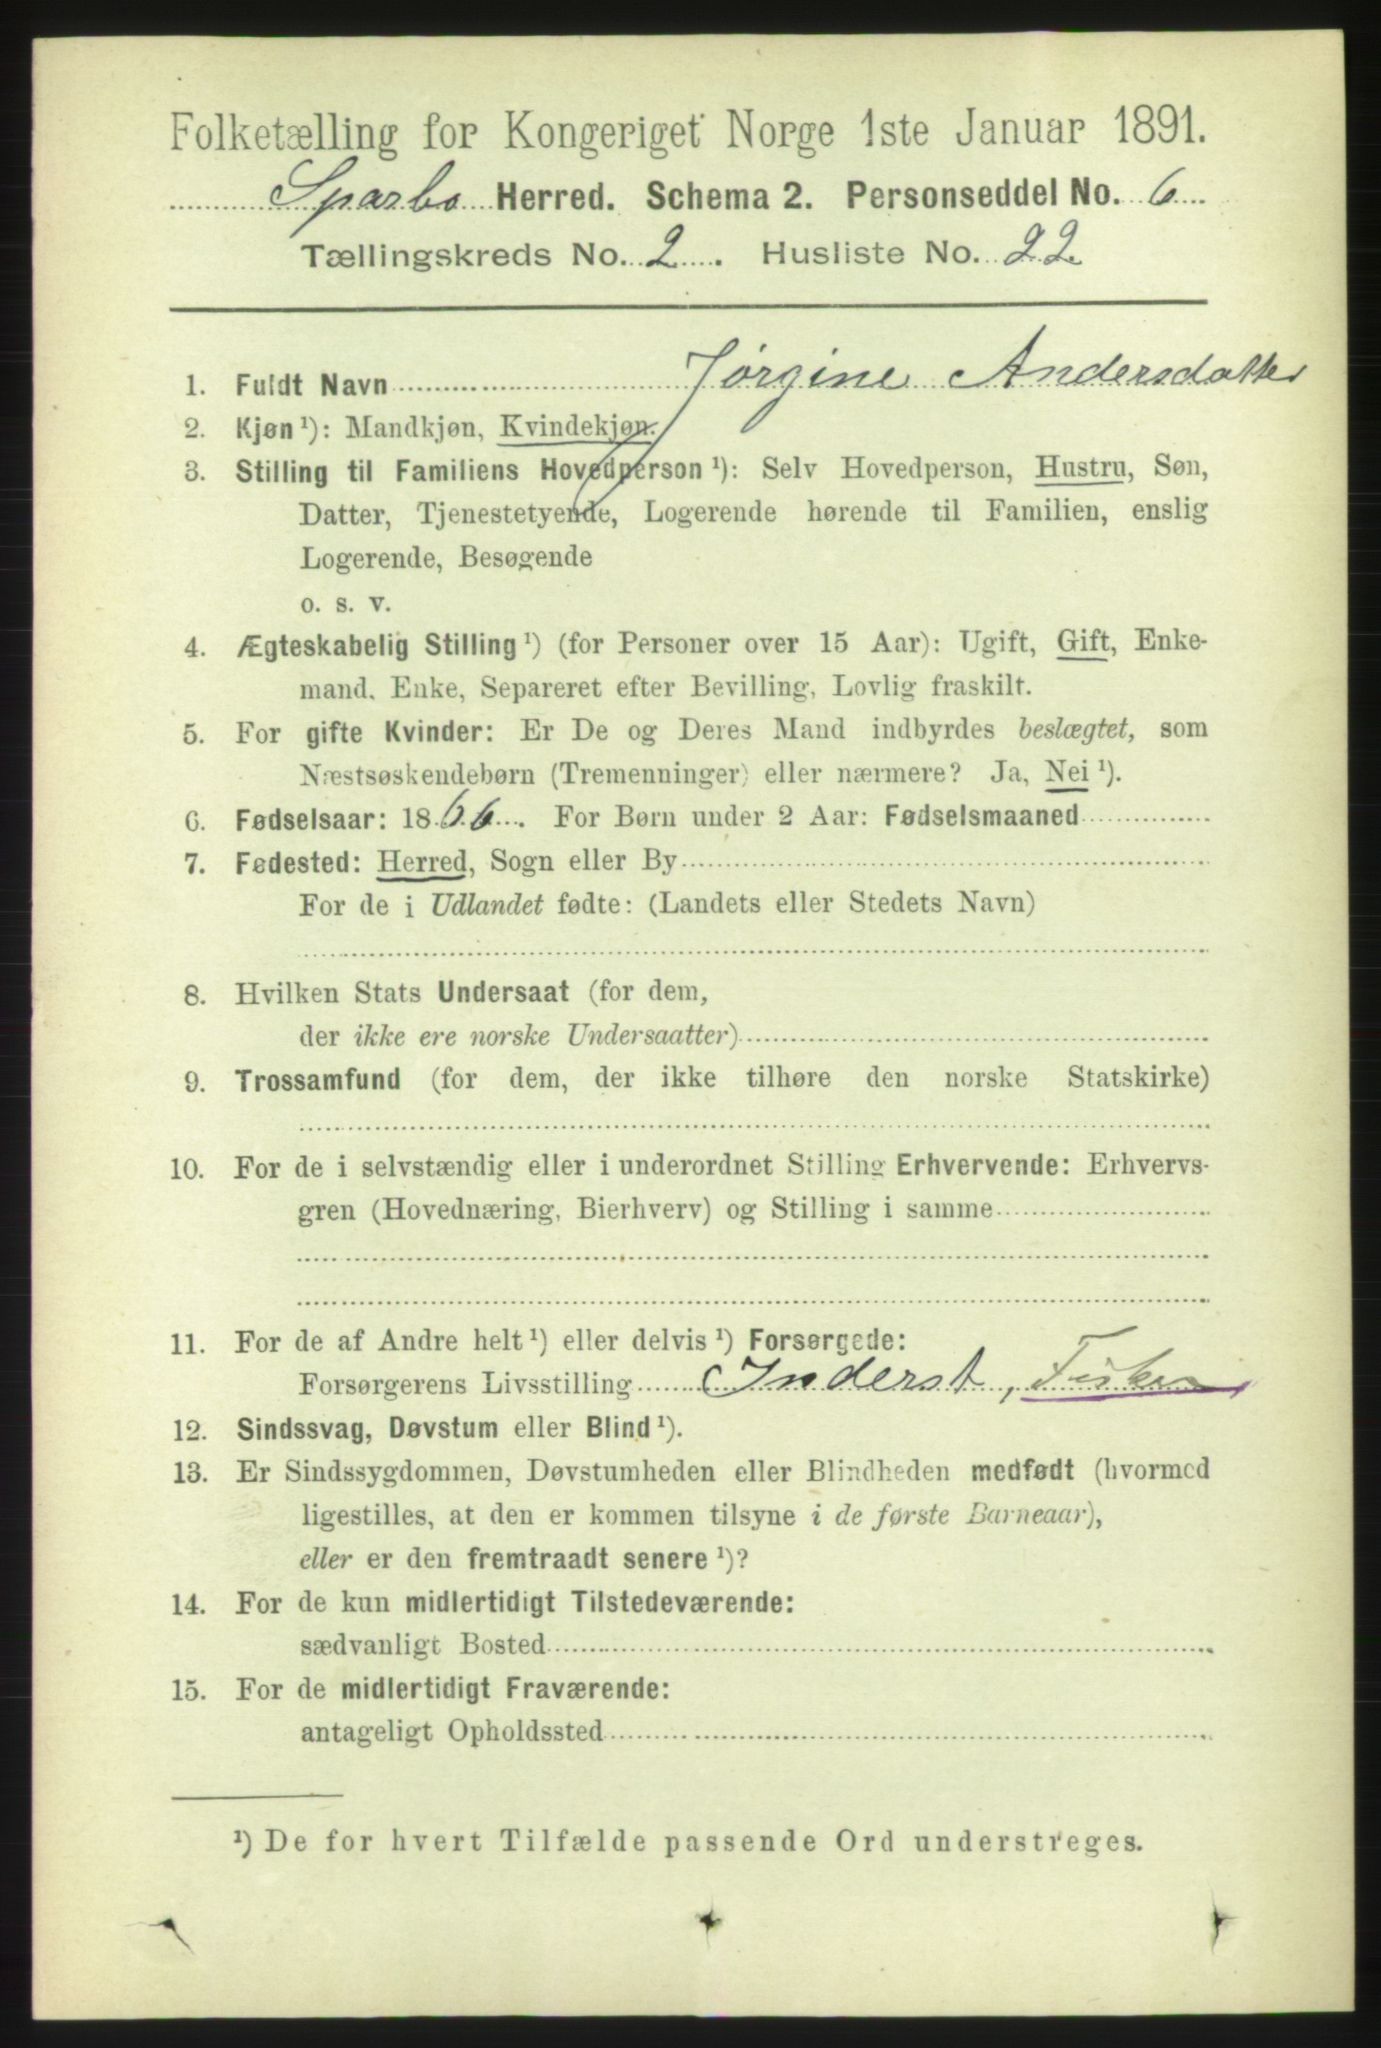 Folketælling for Kongeriget Norge 1ste Januar 1891.
Sparbo Herred. Schema 2. Personseddel No. 6
Tællingskreds No. 2. Husliste No. 22
1. Fuldt Navn Jørgine Andersdatter
2. Kjøn ¹): Mandkjøn, Kvindekjøn.
3. Stilling til Familiens Hovedperson ¹): Selv Hovedperson, Hustru, Søn,
Datter, Tjenestetyende, Logerende hørende til Familien, enslig
Logerende, Besøgende
o. s. v.
4. Ægteskabelig Stilling ¹) (for Personer over 15 Aar): Ugift, Gift, Enke-
mand, Enke, Separeret efter Bevilling, Lovlig fraskilt.
5. For gifte Kvinder: Er De og Deres Mand indbyrdes beslægtet, som
Næstsøskendebørn (Tremenninger) eller nærmere? Ja, Nei ¹).
6. Fødselsaar: 1866. For Børn under 2 Aar: Fødselsmaaned
7. Fødested: Herred, Sogn eller By
For de i Udlandet fødte: (Landets eller Stedets Navn)
8. Hvilken Stats Undersaat (for dem,
der ikke ere norske Undersaatter)
9. Trossamfund (for dem, der ikke tilhøre den norske Statskirke)
10. For de i selvstændig eller i underordnet Stilling Erhvervende: Erhvervs-
gren (Hovednæring, Bierhverv) og Stilling i samme
11. For de af Andre helt ¹) eller delvis ¹) Forsørgede:
Forsørgerens Livsstilling Inderst, Fisker
12. Sindssvag, Døvstum eller Blind ¹).
13. Er Sindssygdommen, Døvstumheden eller Blindheden medfødt (hvormed
ligestilles, at den er kommen tilsyne i de første Barneaar),
eller er den fremtraadt senere ¹)?
14. For de kun midlertidigt Tilstedeværende:
sædvanligt Bosted
15. For de midlertidigt Fraværende:
antageligt Opholdssted
¹) De for hvert Tilfælde passende Ord understreges.